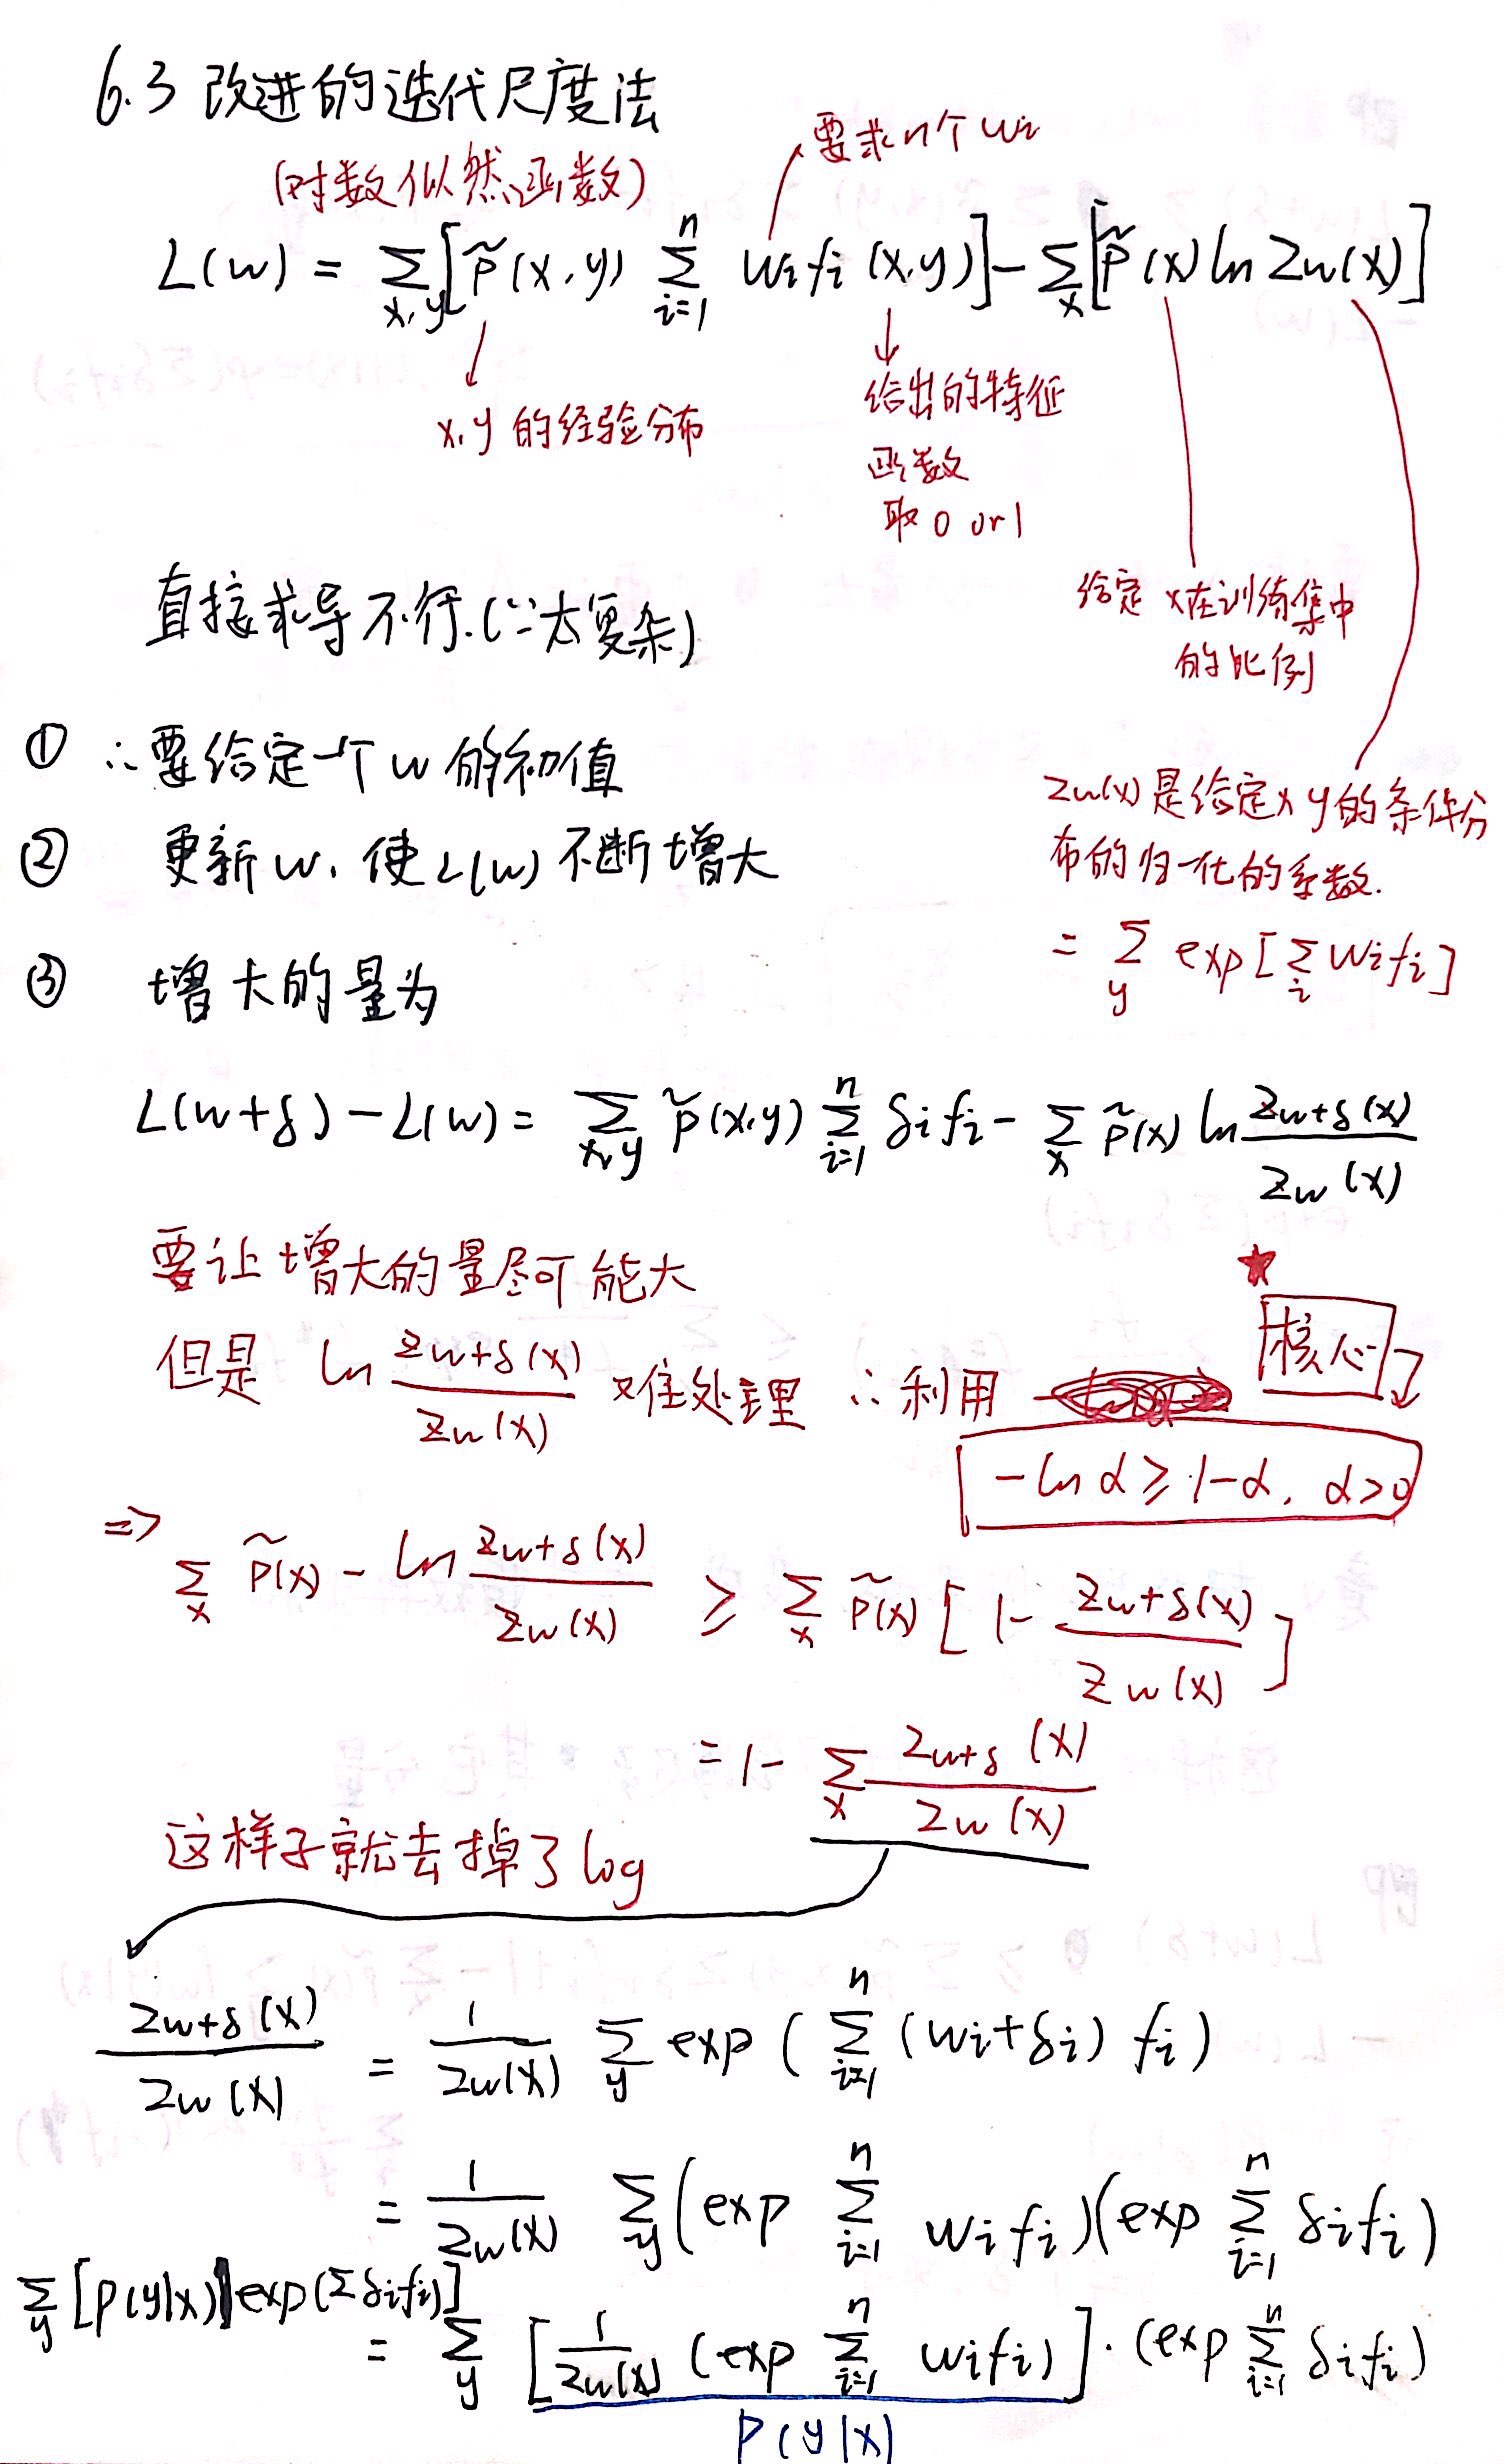 6.3 改进的迭代尺度法
(对数似然函数)
要求n个wi
L(w) = Σ_{x,y}[P̃(x,y) Σ_{i=1}^{n} wi fi (x,y)] - Σ_x[P̃(x) ln Zw(x)]
x,y 的经验分布
给出的特征
函数
取 0 or 1
给定 x在训练集中
的比例
直接求导不行.(∵太复杂)
① ∴要给定一个w的初值
Zw(x)是给定x y的条件分
布的归一化的系数.
= Σ_y exp[Σ_i wi fi]
② 更新w, 使L(w)不断增大
③ 增大的量为
L(w+δ) - L(w) = Σ_{x,y} P̃(x,y) Σ_{i=1}^{n} δi fi - Σ_x P̃(x) ln Zw+δ(x) / Zw(x)
要让增大的量尽可能大
★ 核心
但是 ln Zw+δ(x) / Zw(x) 难处理 ∴利用
-ln α ≥ 1-α, α>0
=> Σ_x P̃(x) - ln Zw+δ(x) / Zw(x) ≥ Σ_x P̃(x) [1 - Zw+δ(x) / Zw(x)]
= 1 - Σ_x Zw+δ(x) / Zw(x)
这样子就去掉了log
Zw+δ(x) / Zw(x) = 1 / Zw(x) Σ_y exp(Σ_{i=1}^{n} (wi+δi) fi)
= 1 / Zw(x) Σ_y (exp Σ_{i=1}^{n} wi fi)(exp Σ_{i=1}^{n} δi fi)
Σ_y [P(y|x)exp(Σδifi)]
= Σ_y [1 / Zw(x) (exp Σ_{i=1}^{n} wi fi)]·(exp Σ_{i=1}^{n} δi fi)
P(y|x)